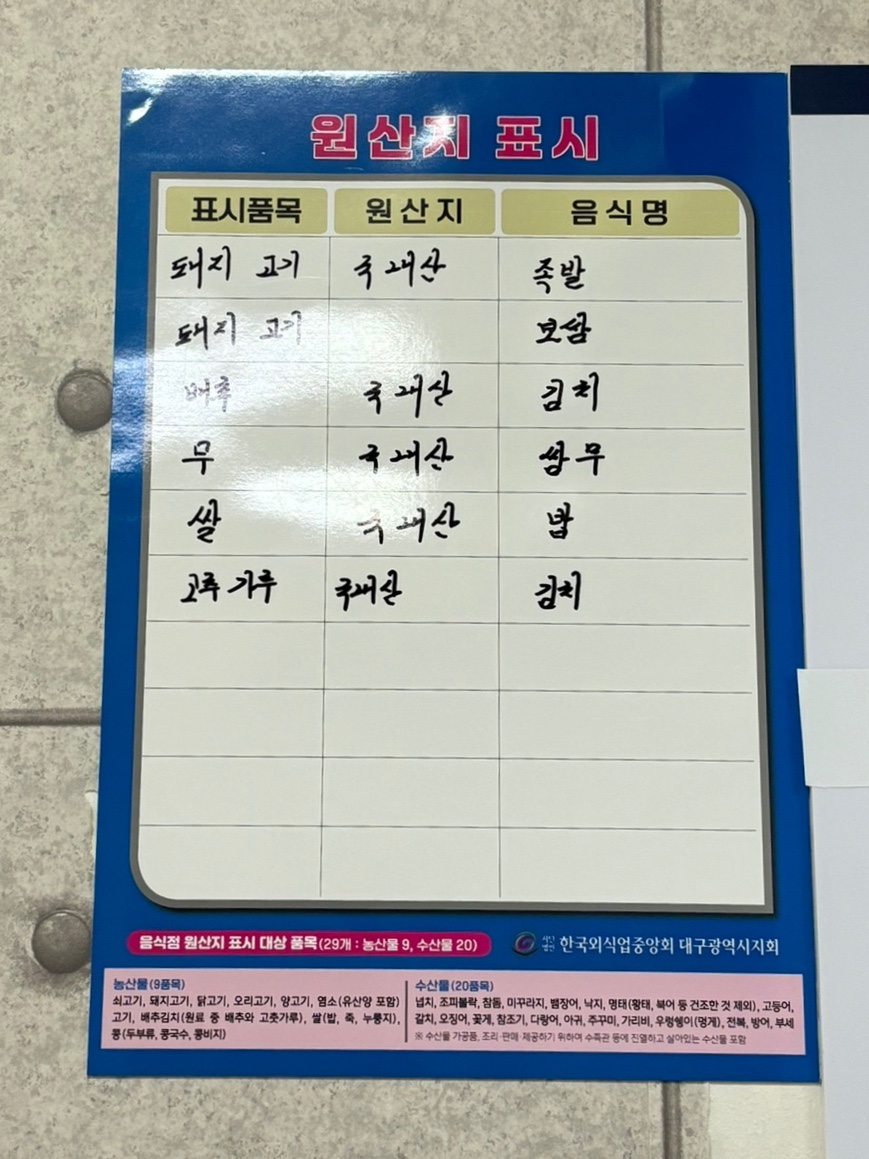 원산지 표시
표시품목 원산지 음식명
돼지 고기 국내산 족발
돼지 고기 보쌈
배추 국내산 김치
무 국내산 쌈무
쌀 국내산 밥
고추 가루 국내산 김치
음식점 원산지 표시 대상 품목(29개 : 농산물 9, 수산물 20)
사단법인 한국외식업중앙회 대구광역시지회
농산물(9품목)
쇠고기, 돼지고기, 닭고기, 오리고기, 양고기, 염소(유산양 포함)
고기, 배추김치(원료 중 배추와 고춧가루), 쌀(밥, 죽, 누룽지),
콩(두부류, 콩국수, 콩비지)
수산물(20품목)
넙치, 조피볼락, 참돔, 미꾸라지, 뱀장어, 낙지, 명태(황태, 북어 등 건조한 것 제외), 고등어,
갈치, 오징어, 꽃게, 참조기, 다랑어, 아귀, 주꾸미, 가리비, 우렁쉥이(멍게), 전복, 방어, 부세
※ 수산물 가공품, 조리·판매·제공하기 위하여 수족관 등에 진열하고 살아있는 수산물 포함